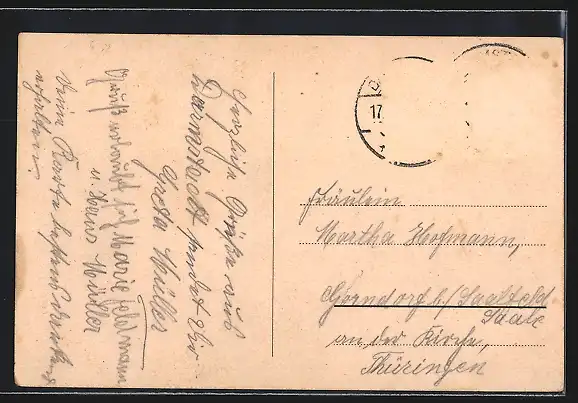 Herzliche Grüße aus
Darmstadt sendet Dir
Greta Müller
Gruß erlaubt sich Marie Feldmann
u. Hans Müller
Deine Karte bestens dankend
erhalten.
17.
Fräulein
Martha Hofmann,
Gorndorf b/Saalfeld
Saale
an der Kirche,
Thüringen